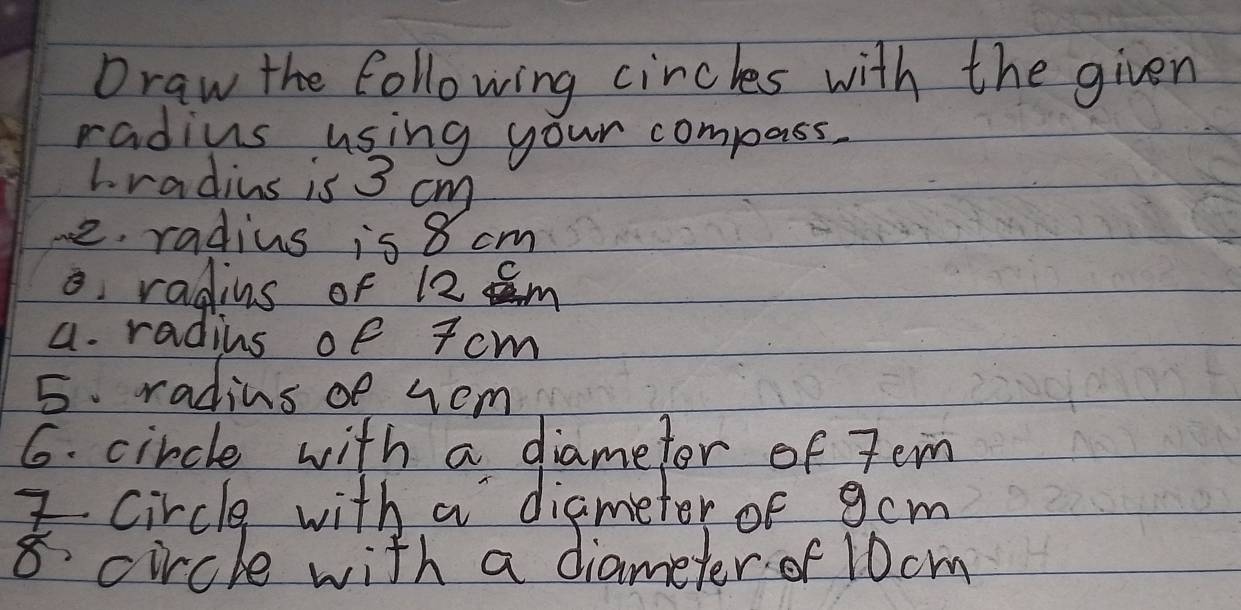 Draw the following circles with the given
radius using your compass.
1. radius is 3 cm
2. radius is 8 cm
3. radius of 12 cm
4. radius of 7cm
5. radius of 4cm
6. circle with a diameter of 7cm
7. Circle with a diameter of 9cm
8. circle with a diameter of 10cm